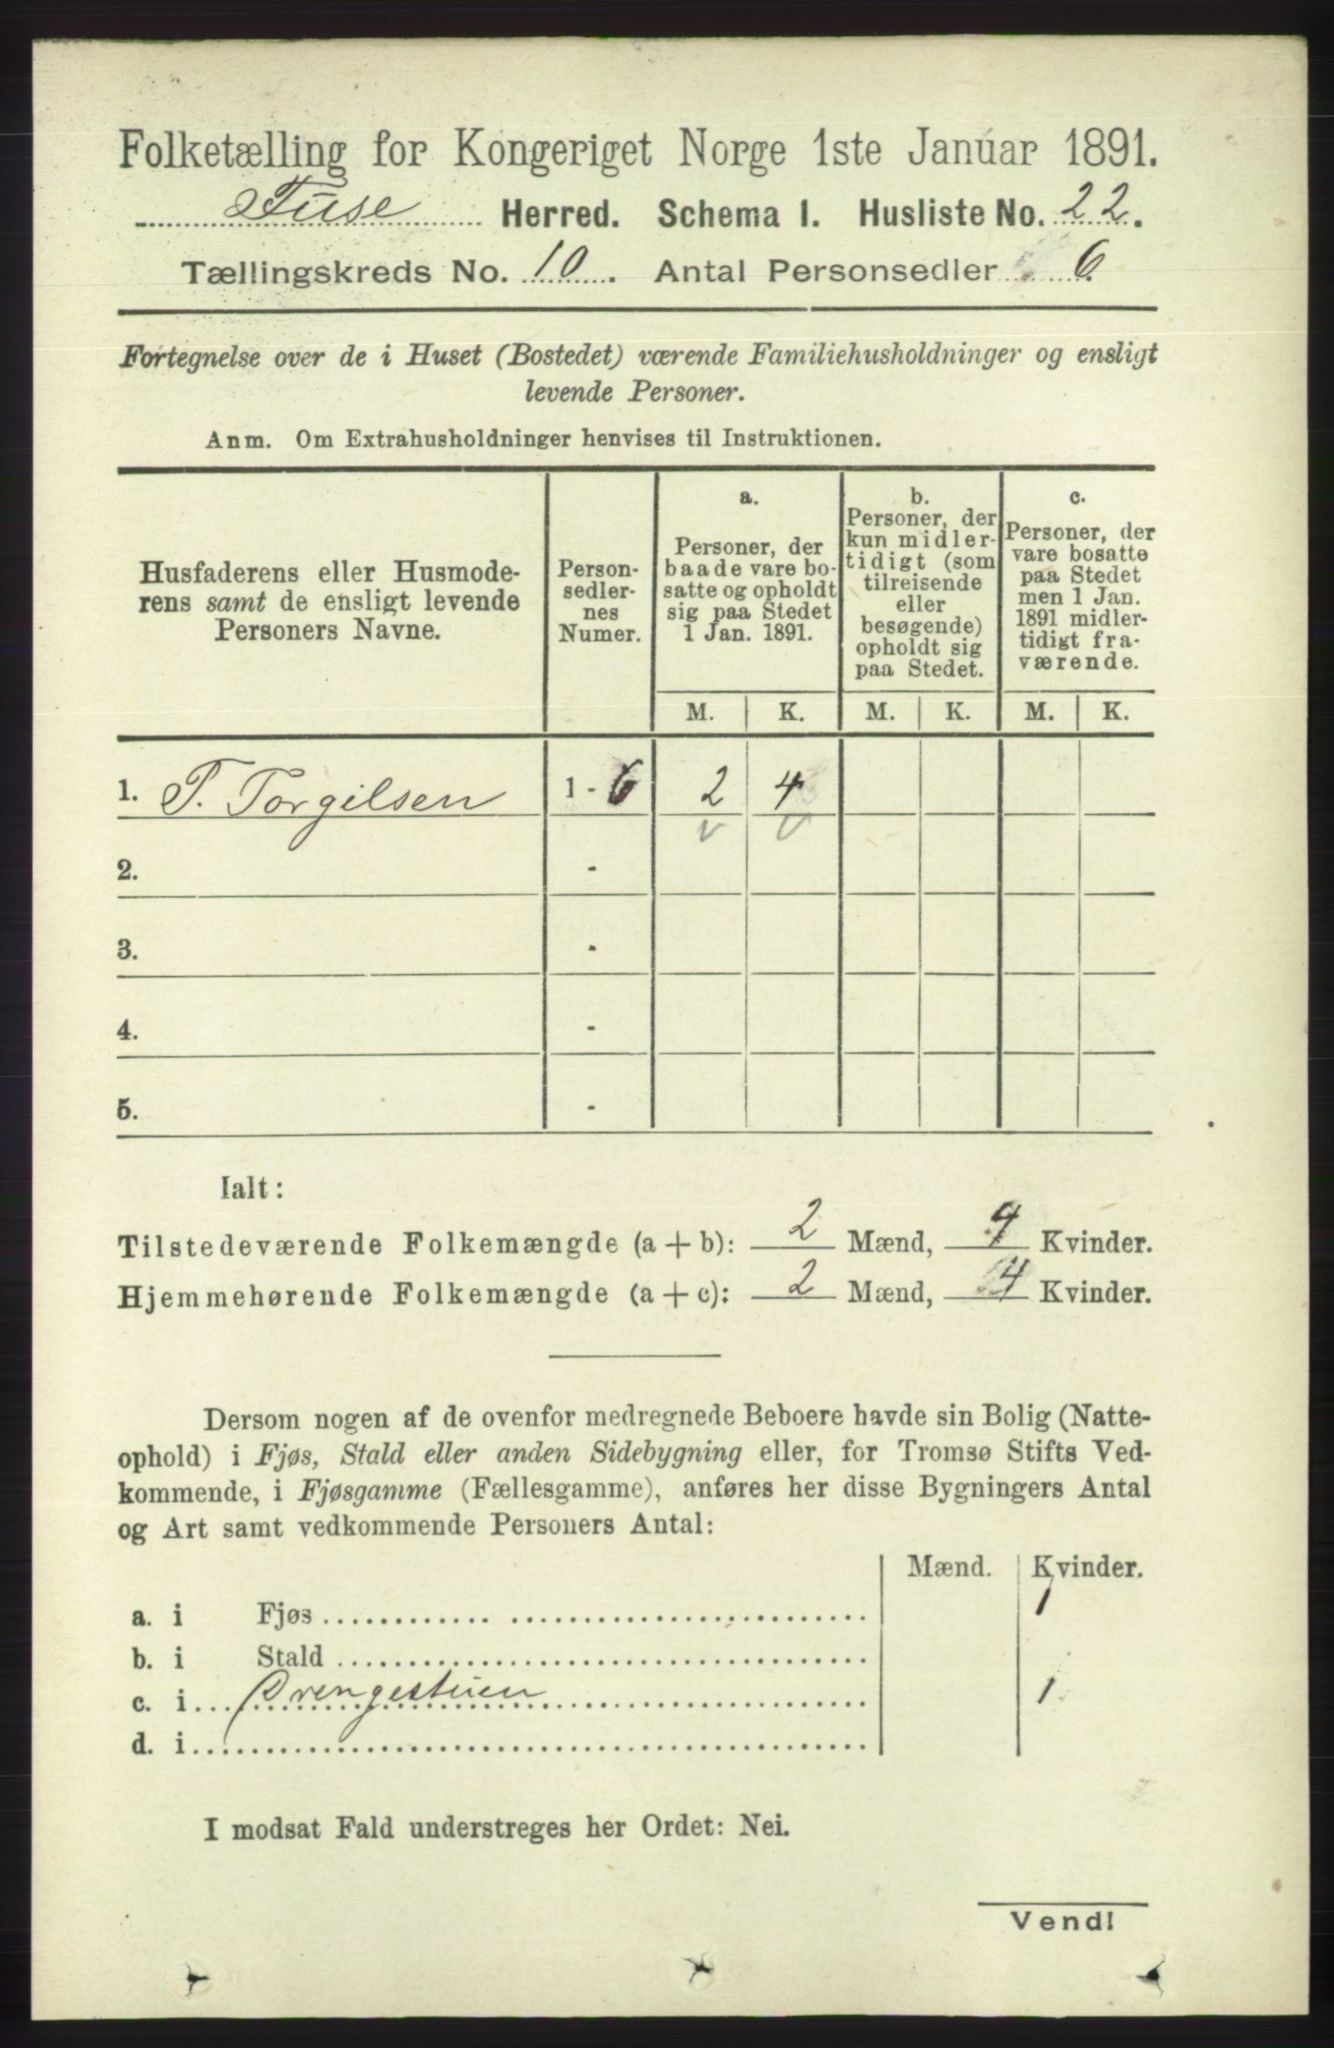 Folketælling for Kongeriget Norge 1ste Januar 1891.
Fuse Herred. Schema 1. Husliste No. 22.
Tællingskreds No. 10. Antal Personsedler 6
Fortegnelse over de i Huset (Bostedet) værende Familiehusholdninger og ensligt
levende Personer.
Anm. Om Extrahusholdninger henvises til Instruktionen.
Husfaderens eller Husmode-
rens samt de ensligt levende
Personers Navne.
Person-
sedler-
nes
Numer.
a.
Personer, der
baade vare bo-
satte og opholdt
sig paa Stedet
1 Jan. 1891.
b.
Personer, der
kun midler-
tidigt (som
tilreisende
eller
besøgende)
opholdt sig
paa Stedet.
c.
Personer, der
vare bosatte
paa Stedet
men 1 Jan.
1891 midler-
tidigt fra-
værende.
M. K. M. K. M. K.
1. T. Torgilsen 1 - 6 2 4
v v
2. -
3. -
4. -
5. -
Ialt:
Tilstedeværende Folkemængde (a + b): 2 Mænd, 4 Kvinder.
Hjemmehørende Folkemængde (a + c): 2 Mænd, 4 Kvinder.
Dersom nogen af de ovenfor medregnede Beboere havde sin Bolig (Natte-
ophold) i Fjøs, Stald eller anden Sidebygning eller, for Tromsø Stifts Ved-
kommende, i Fjøsgamme (Fællesgamme), anføres her disse Bygningers Antal
og Art samt vedkommende Personers Antal:
Mænd. Kvinder.
a. i Fjøs 1
b. i Stald
c. i 1
d. i
I modsat Fald understreges her Ordet: Nei.
Vend!